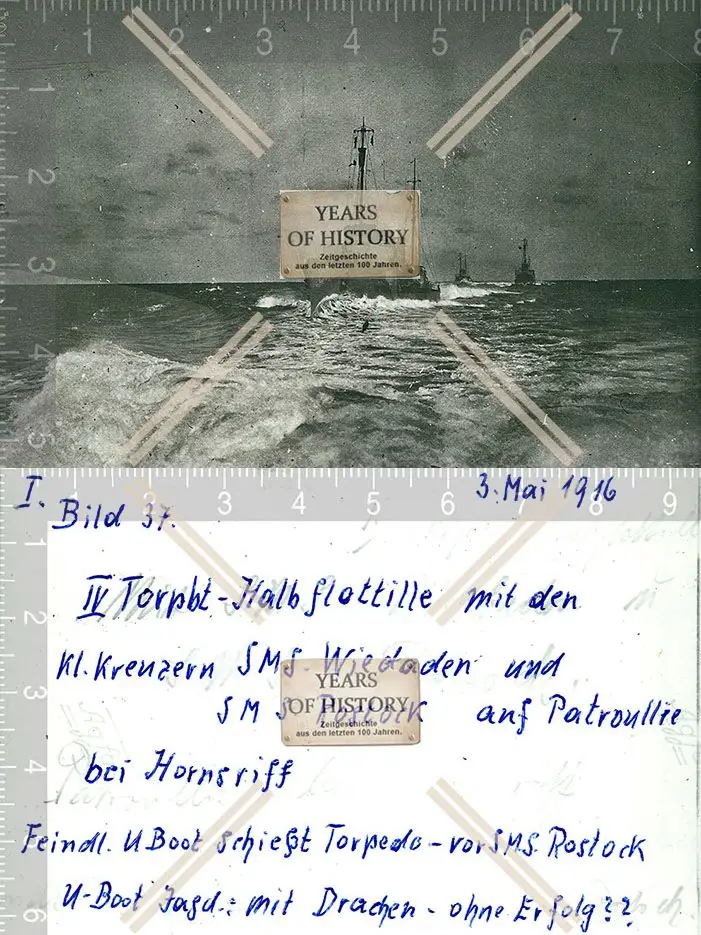 1 2 3 4 5 6 7 8
1
2
3
4
5
YEARS
OF HISTORY
Zeitgeschichte
aus den letzten 100 Jahren.
2 3 4 5 6 7 8 9
1
2
3
4
5
6
I. 3. Mai 1916
Bild 37.
IV Torpbt-Halbflottille mit den
Kl. Kreuzern SMS Wiedaden und
SMS Rostock auf Patroullie
bei Hornsriff
Feindl. U Boot schießt Torpedo - vor SMS. Rostock
U-Boot Jagd: mit Drachen - ohne Erfolg??
YEARS
OF HISTORY
Zeitgeschichte
aus den letzten 100 Jahren.